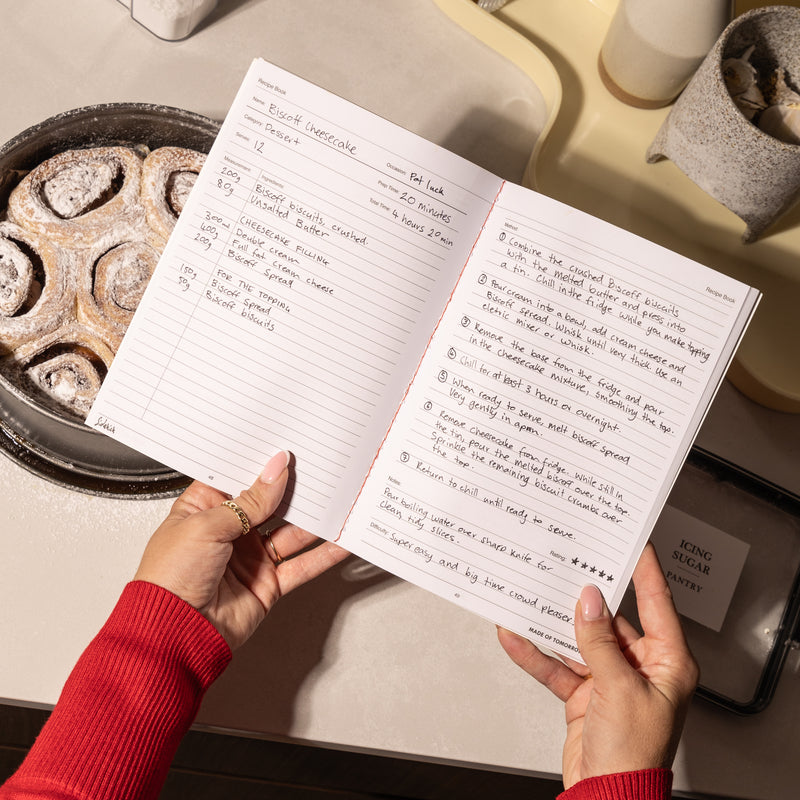 Recipe Book
Name: Biscoff Cheesecake
Category: Dessert
Occasion: Pot luck
Serves: 12
Prep Time: 20 minutes
Total Time: 4 hours 20 min
Measurement Ingredients
200g Biscoff biscuits, crushed.
80g Unsalted Butter
CHEESECAKE FILLING
300ml Double cream
400g Full fat cream cheese
200g Biscoff Spread
FOR THE TOPPING
150g Biscoff Spread
50g Biscoff biscuits
48
Recipe Book
Method:
1 Combine the crushed Biscoff biscuits
with the melted butter and press into
a tin. Chill in the fridge while you make topping
2 Pour cream into a bowl, add cream cheese and
Biscoff spread. Whisk until very thick. Use an
eletric mixer or whisk.
3 Remove the base from the fridge and pour
in the cheesecake mixture, smoothing the top.
4 Chill for at least 3 hours or overnight.
5 When ready to serve, melt biscoff spread
very gently in a pan.
6 Remove cheesecake from fridge. While still in
the tin, pour the melted biscoff over the top.
Sprinkle the remaining biscuit crumbs over
the top.
7 Return to chill until ready to serve.
Notes:
Pour boiling water over sharp knife for
clean, tidy slices.
Rating: ★★★★★
Difficulty: Super easy and big time crowd pleaser.
49
MADE OF TOMORROW
ICING
SUGAR
PANTRY